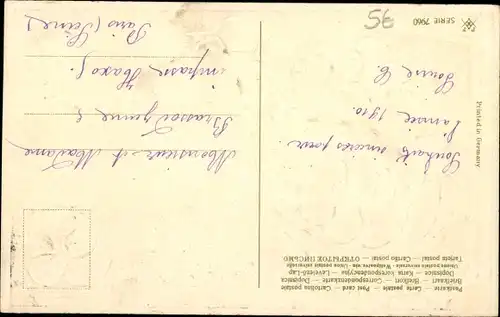 Postkarte — Carte postale — Post card — Cartolina postale
Briefkaart — Brefkort — Correspondenzkarte — Dopisnica
Dopisnice — Karta korespondencyjna — Levelező-Lap
Union postale universelle
Tarjeta postal — Cartão postal — ОТКРЫТОЕ ПИСЬМО
Souhaits sincères pour
l'année 1910.
Louise C.
Monsieur et Madame
impasse
Paris (Seine)
Printed in Germany
SERIE 7960
56